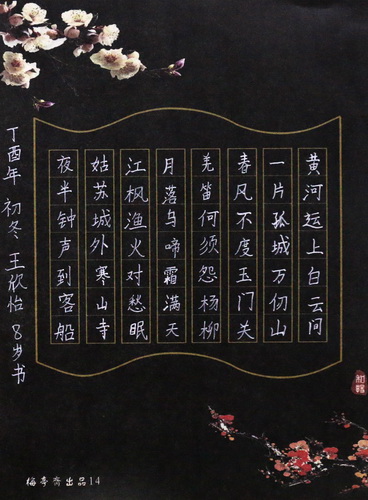 黄河远上白云间
一片孤城万仞山
春风不度玉门关
羌笛何须怨杨柳
月落乌啼霜满天
江枫渔火对愁眠
姑苏城外寒山寺
夜半钟声到客船
丁酉年 初冬 王欣怡 8岁书
出品14